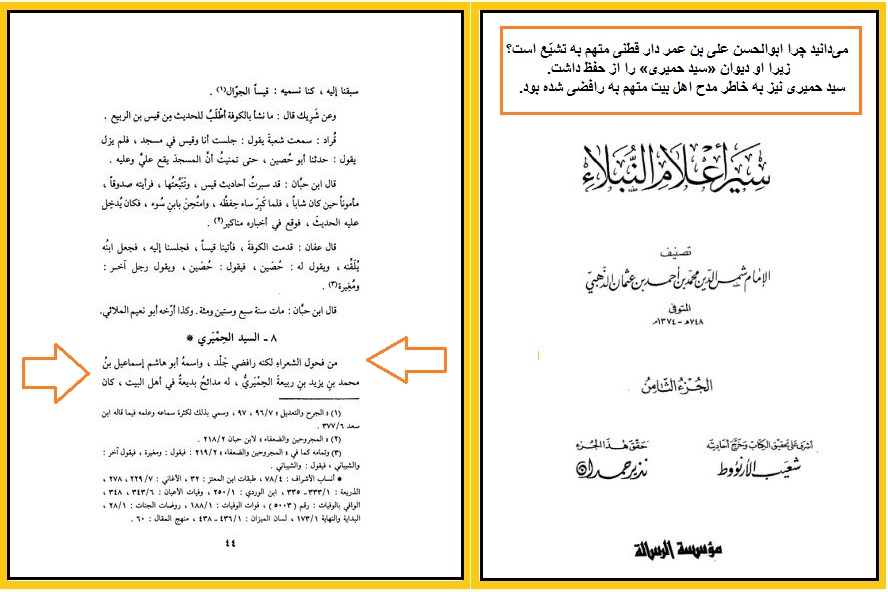 می‌دانید چرا ابوالحسن علی بن عمر دار قطنی متهم به تشیّع است؟
زیرا او دیوان «سید حمیری» را از حفظ داشت.
سید حمیری نیز به خاطر مدح اهل بیت متهم به رافضی شده بود.
سير أعلام النبلاء
تصنيف
الإمام شمس الدين محمد بن أحمد بن عثمان الذهبي
المتوفى
٧٤٨هـ - ١٣٧٤م
الجزء الثامن
أشرف على تحقيق الكتاب وخرّج أحاديثه
شعيب الأرنؤوط
حقّق هذا الجزء
نذير حمدان
مؤسسة الرسالة
سبقنا إليه ، كنا نسميه : قيساً الجوّال(١) .
وعن شَرِيك قال : ما نشأ بالكوفة أطْلَبُ للحديث مِن قيس بن الربيع .
قُراد : سمعت شعبةَ يقول : جلست أنا وقيس في مسجد ، فلم يزل
يقول : حدثنا أبو حُصين ، حتى تمنيتُ أنَّ المسجدَ يقع عليَّ وعليه .
قال ابن حبَّان : قد سبرتُ أحاديث قيس ، وتَتَبَّعْتُها ، فرأيته صدوقاً ،
مأموناً حين كان شاباً ، فلما كَبِرَ ساء حِفظُه ، وامتُحِنَ بابنِ سُوء ، فكان يُدخِل
عليه الحديثَ ، فوقع في أخباره مناكير(٢) .
قال عفان : قدمت الكوفةَ ، فأتينا قيساً ، فجلسنا إليه ، فجعل ابنُه
يُلَقِّنه ، ويقول له : حُصَين ، فيقول : حُصَين ، ويقول رجل آخر :
ومُغِيرة(٣) .
قال ابن حبَّان : مات سنة سبع وستين ومئة . وكذا أرّخه أبو نعيم الملائي.
٨ - السيد الحِمْيَري *
من فحول الشعراءِ لكنه رافضي جَلْد ، واسمهُ أبو هاشم إسماعيل بنُ
محمد بنِ يزيد بنِ ربيعةَ الحِمْيَريُّ ، له مدائحُ بديعةٌ في أهل البيت ، كان
(١) « الجرح والتعديل » ٩٦/٧ ، ٩٧ ، وسمي بذلك لكثرة سماعه وعلمه فيما قاله ابن
سعد ٣٧٧/٦ .
(٢) « المجروحين والضعفاء » لابن حبان ٢١٨/٢ .
(٣) وتمامه كما في « المجروحين والضعفاء » ٢١٩/٢ : فيقول : ومغيرة ، فيقول آخر :
والشيباني ، فيقول : والشيباني .
* أنساب الأشراف : ٧٨/٤ ، طبقات ابن المعتز : ٣٢ ، الأغاني : ٢٢٩/٧ ، ٢٧٨ ،
الذريعة : ٣٣٣/١ - ٣٣٥ ، ابن الوردي : ٢٥٠/١ ، وفيات الأعيان : ٣٤٣/٦ ، ٣٤٨ ،
الوافي بالوفيات : رقم ( ٥٠٠٣ ) ، فوات الوفيات : ١٨٨/١ ، روضات الجنات : ٢٨/١ ،
البداية والنهاية ١٧٣/١ ، لسان الميزان : ٤٣٦/١ - ٤٣٨ ، منهج المقال : ٦٠ .
٤٤